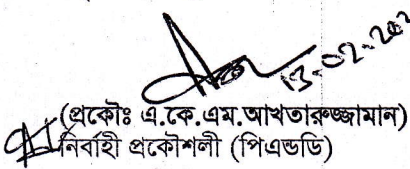 ১৩-০২-২০২
(প্রকৌঃ এ.কে.এম.আখতারুজ্জামান)
নির্বাহী প্রকৌশলী (পিএন্ডডি)